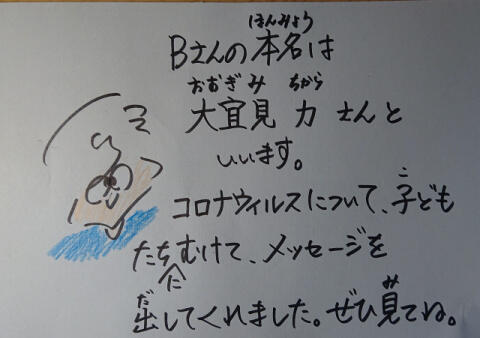 ほんみょう
Bさんの本名は
おおぎみ ちから
大宜見 力 さんと
いいます。
こ
コロナウィルスについて、子ども
たちむけて、メッセージを
に
だ み
出してくれました。ぜひ見てね。